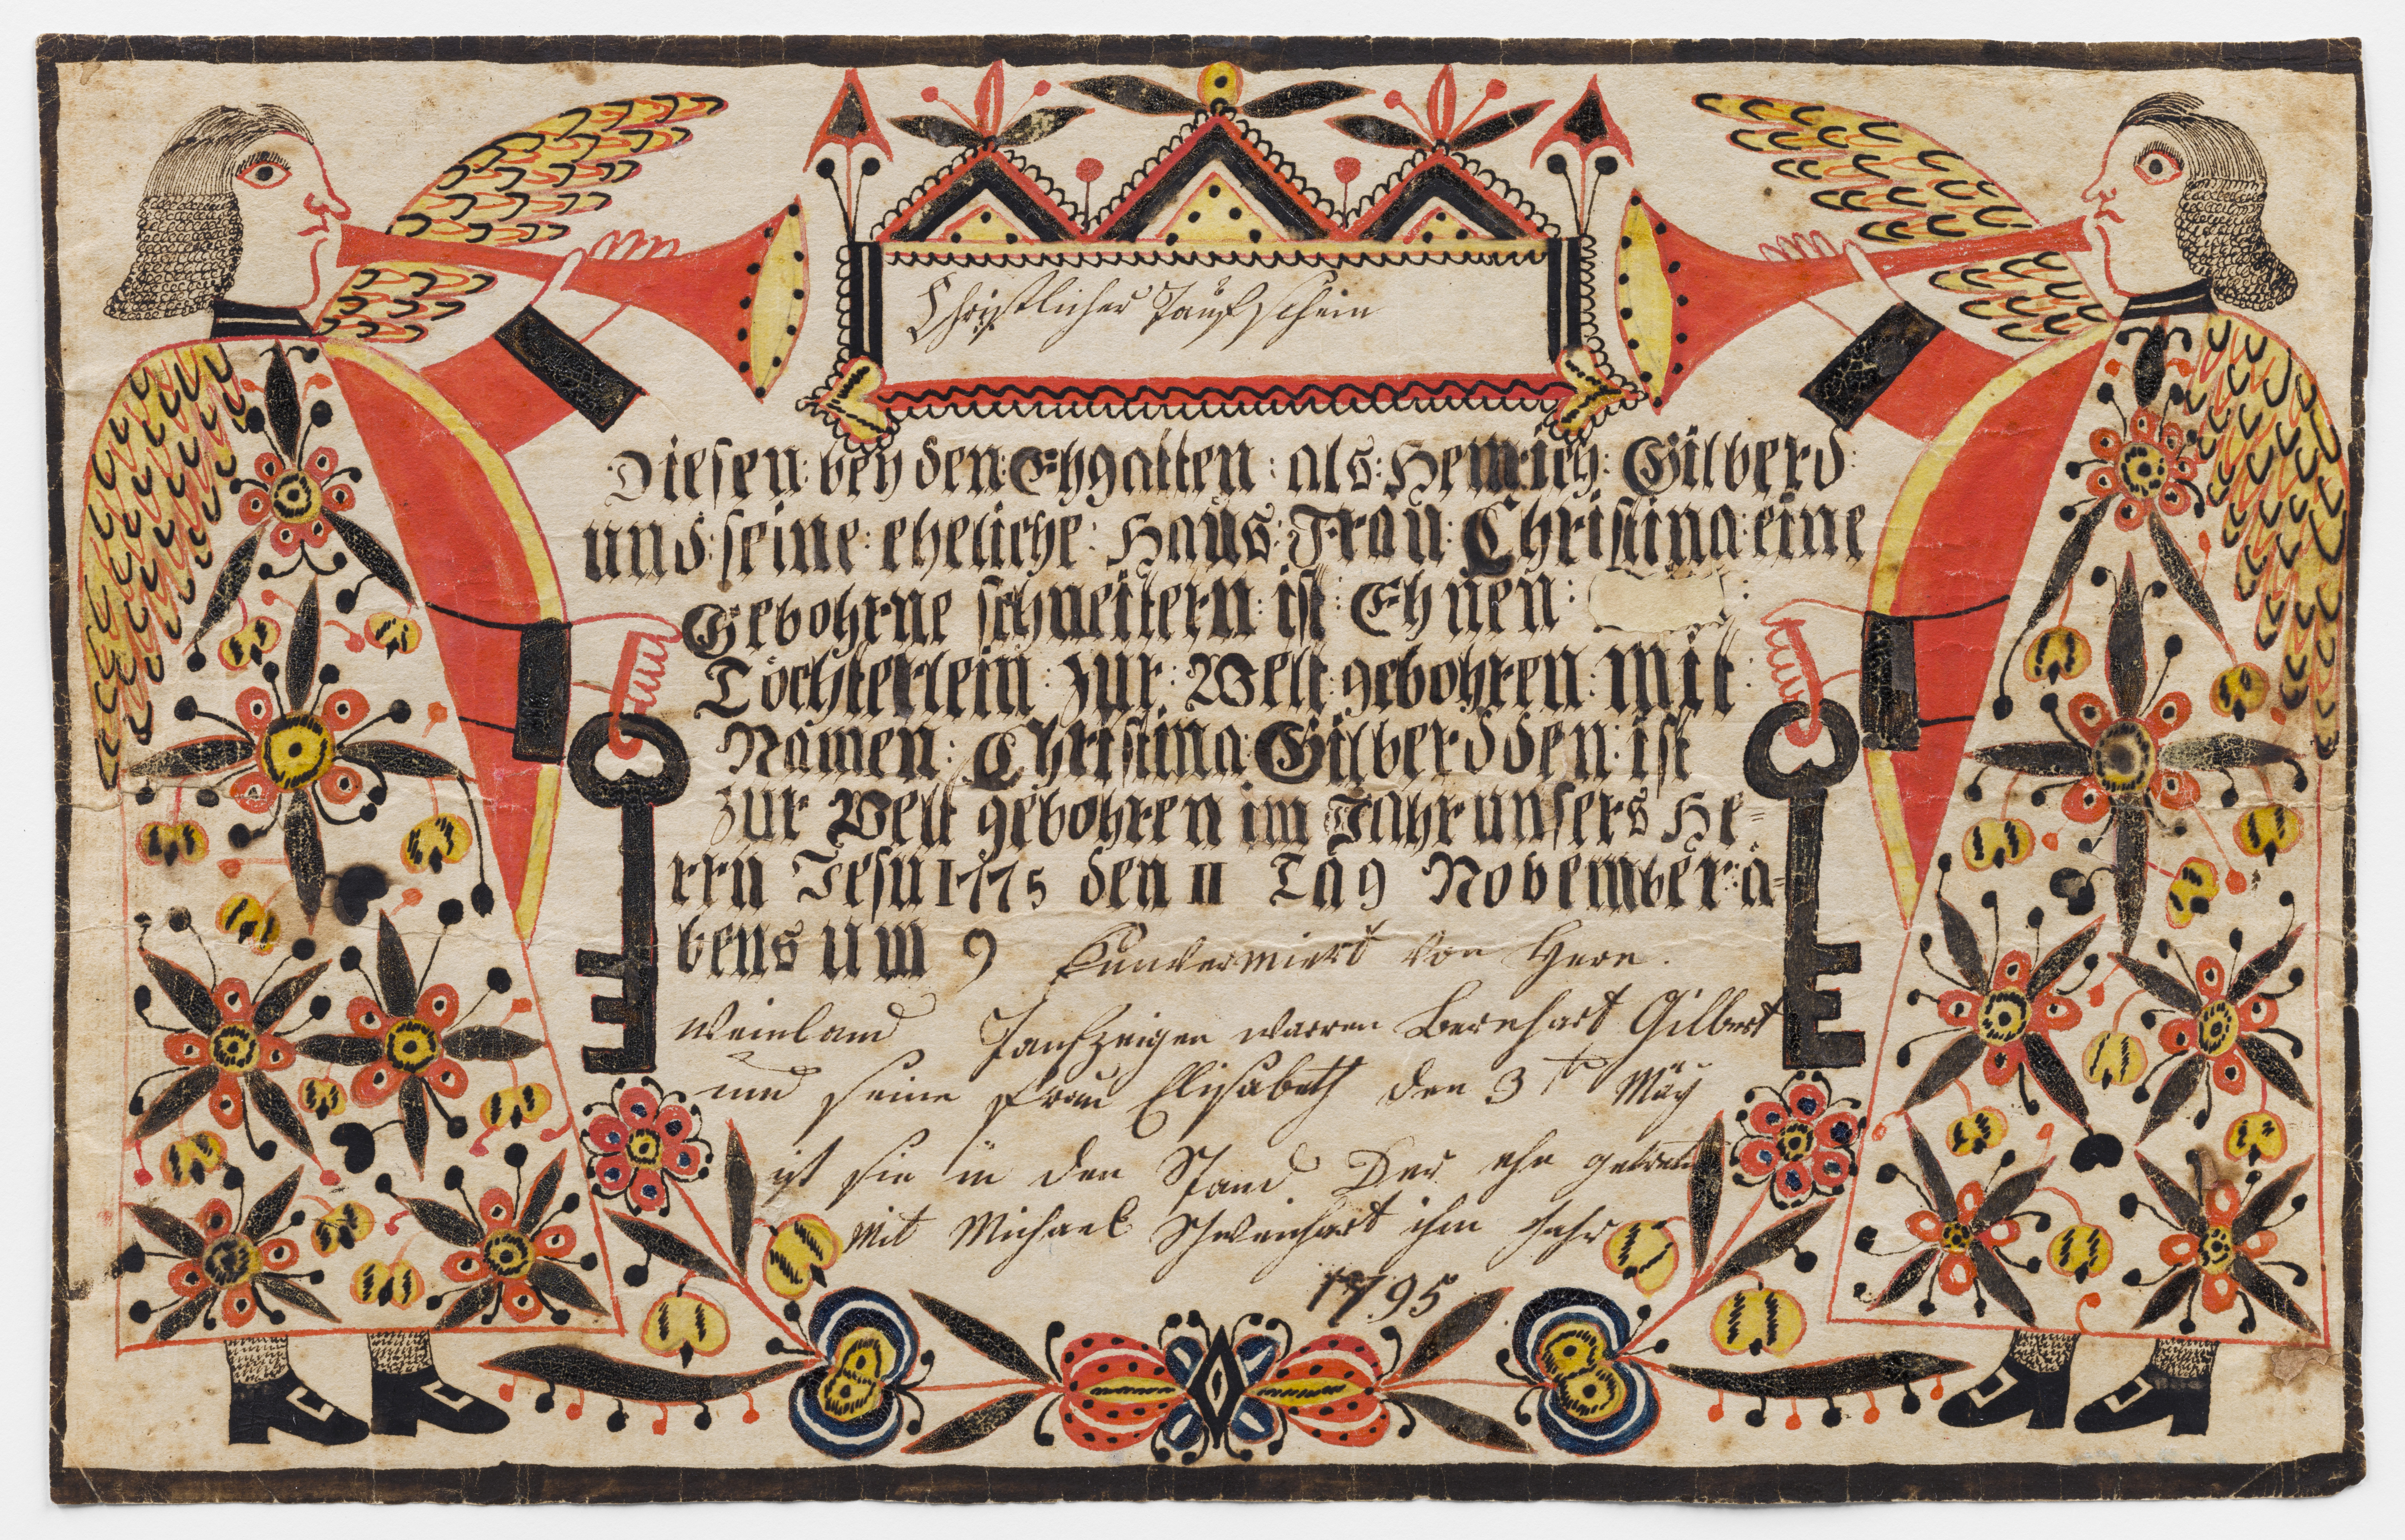 Christlicher Taufschein
Diesen: bey den: Ehgatten: als: Henrich: Gilberd:
und: seine: eheliche: Haus: Frau: Christina: eine
Gebohrne schneitern: ist: Ehnen:
Töchterlein: zur: Welt: gebohren: mit:
Namen: Christina: Gilberd den: ist
zur Welt gebohren im Jahr unsers He=
rrn Jesu 1775 den 11 Tag November: a=
bens um 9 Kunvermiert von Hern.
Weinland Taufzeigen warren Bernhart Gilbert
und seine frau Elisabeth den 3th Mäy
ist sie in den Stand Der ehe getreten
mit Michael Schweinhart ihm Jahr
1795